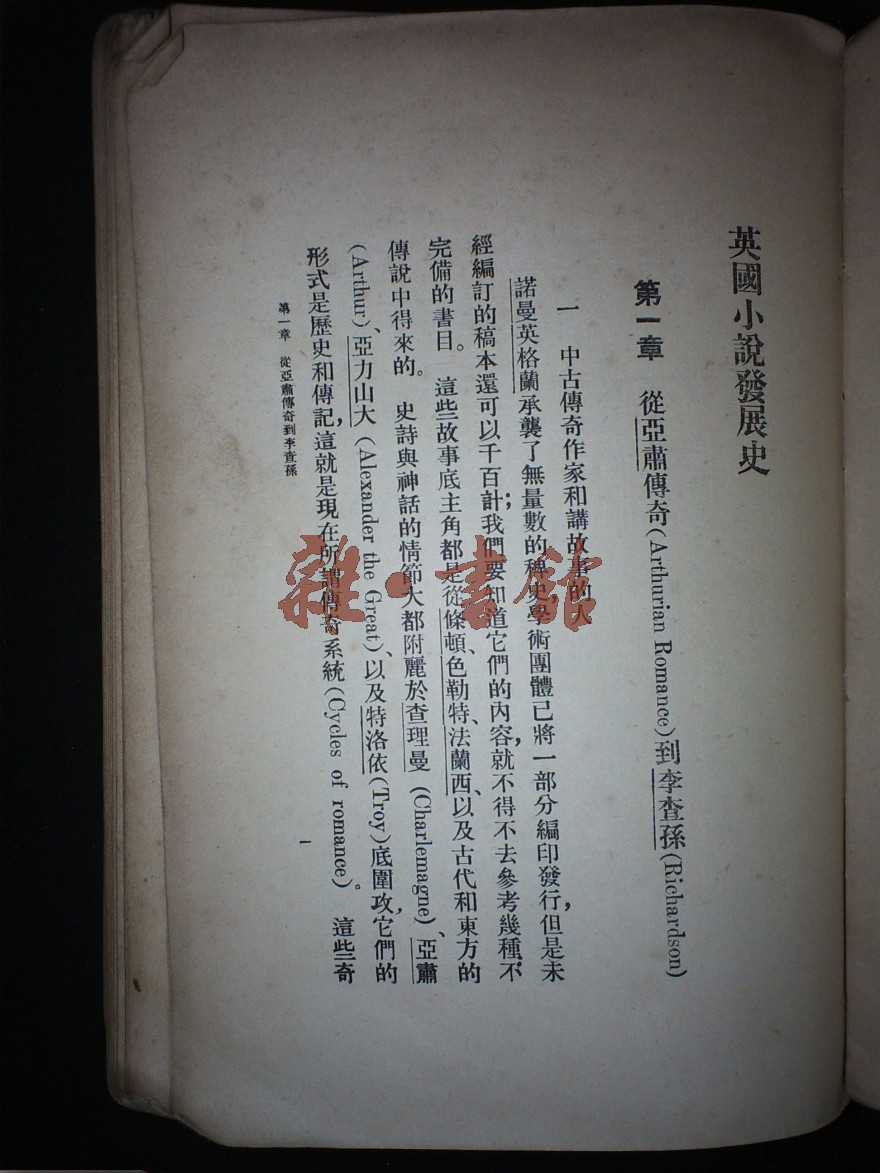 英國小說發展史
第一章 從亞肅傳奇(Arthurian Romance)到李查孫(Richardson)
一 中古傳奇作家和講故事的人
諾曼英格蘭承襲了無量數的稗史,學術團體已將一部分編印發行,但是未
經編訂的稿本還可以千百計;我們要知道它們的內容,就不得不去參考幾種不
完備的書目。這些故事底主角都是從條頓、色勒特、法蘭西、以及古代和東方的
傳說中得來的。史詩與神話的情節大都附麗於查理曼(Charlemagne)、亞肅
(Arthur)、亞力山大(Alexander the Great)、以及特洛依(Troy)底圍攻,它們的
形式是歷史和傳記,這就是現在所謂傳奇系統(Cycles of romance)。這些奇
第一章 從亞肅傳奇到李查孫
一
雜·書館